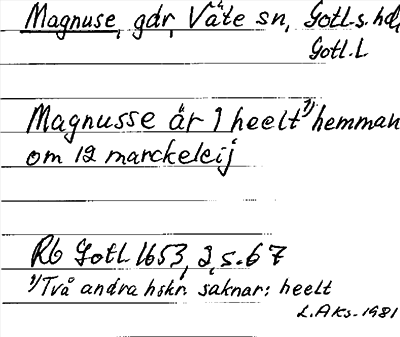 Magnuse, gdr, Väte sn, Gotl.s. hd,
Gotl. L
Magnusse är 1 heelt ¹) hemman
om 12 marckeleij
Rb Gotl 1653, 2, s. 67
¹) Två andra hskr. saknar: heelt
L. Aks. 1981